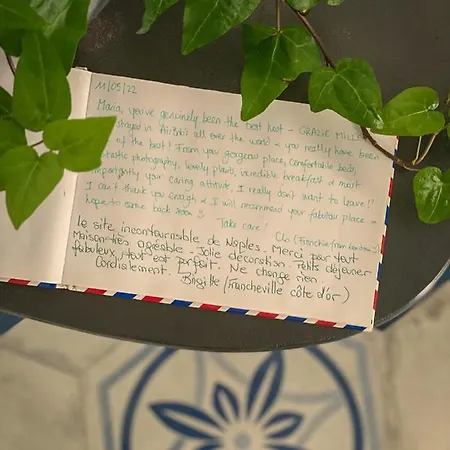 11/05/22
Maria, you've genuinely been the best host - GRAZIE MILLE!
stayed in AirBnb's all over the world & you really have been
of the best! From your gorgeous place, comfortable beds,
fantastic photography, lovely plants, incredible breakfast & most
importantly your caring attitude, I really don't want to leave!!
I can't thank you enough & I will recommend your fabulous place -
hope to come back soon
Take care! Clo (Franchie from London)
le site incontournable de Naples. Merci pour tout
Maison très agréable. Jolie décoration. Petits déjeuner
fabuleux, tout est parfait. Ne change rien.
Cordialement. Brigitte (Francheville côte d'or)